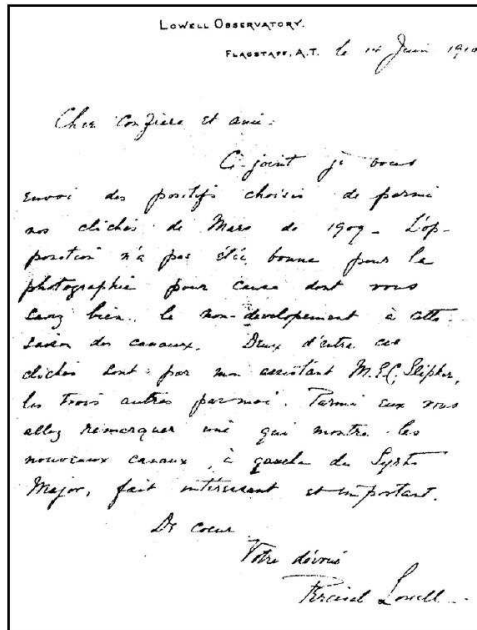 LOWELL OBSERVATORY.
FLAGSTAFF, A.T. le 14 Juin 1910
Cher confrere et ami:
Ci-joint je vous
envoi des positifs choisis de parmi
nos clichés de Mars de 1909 - L'op-
position n'a pas été bonne pour la
photographie pour cause dont vous
savez bien, le non-developement à cette
saison des canaux. Deux d'entre ces
clichés sont par mon assistant M. E.C. Slipher,
les trois autres par moi. Parmi eux vous
allez remarquer une qui montre les
nouveaux canaux, à gauche du Syrtis
Major, fait intéressant et important.
De coeur
Votre dévoué
Percival Lowell